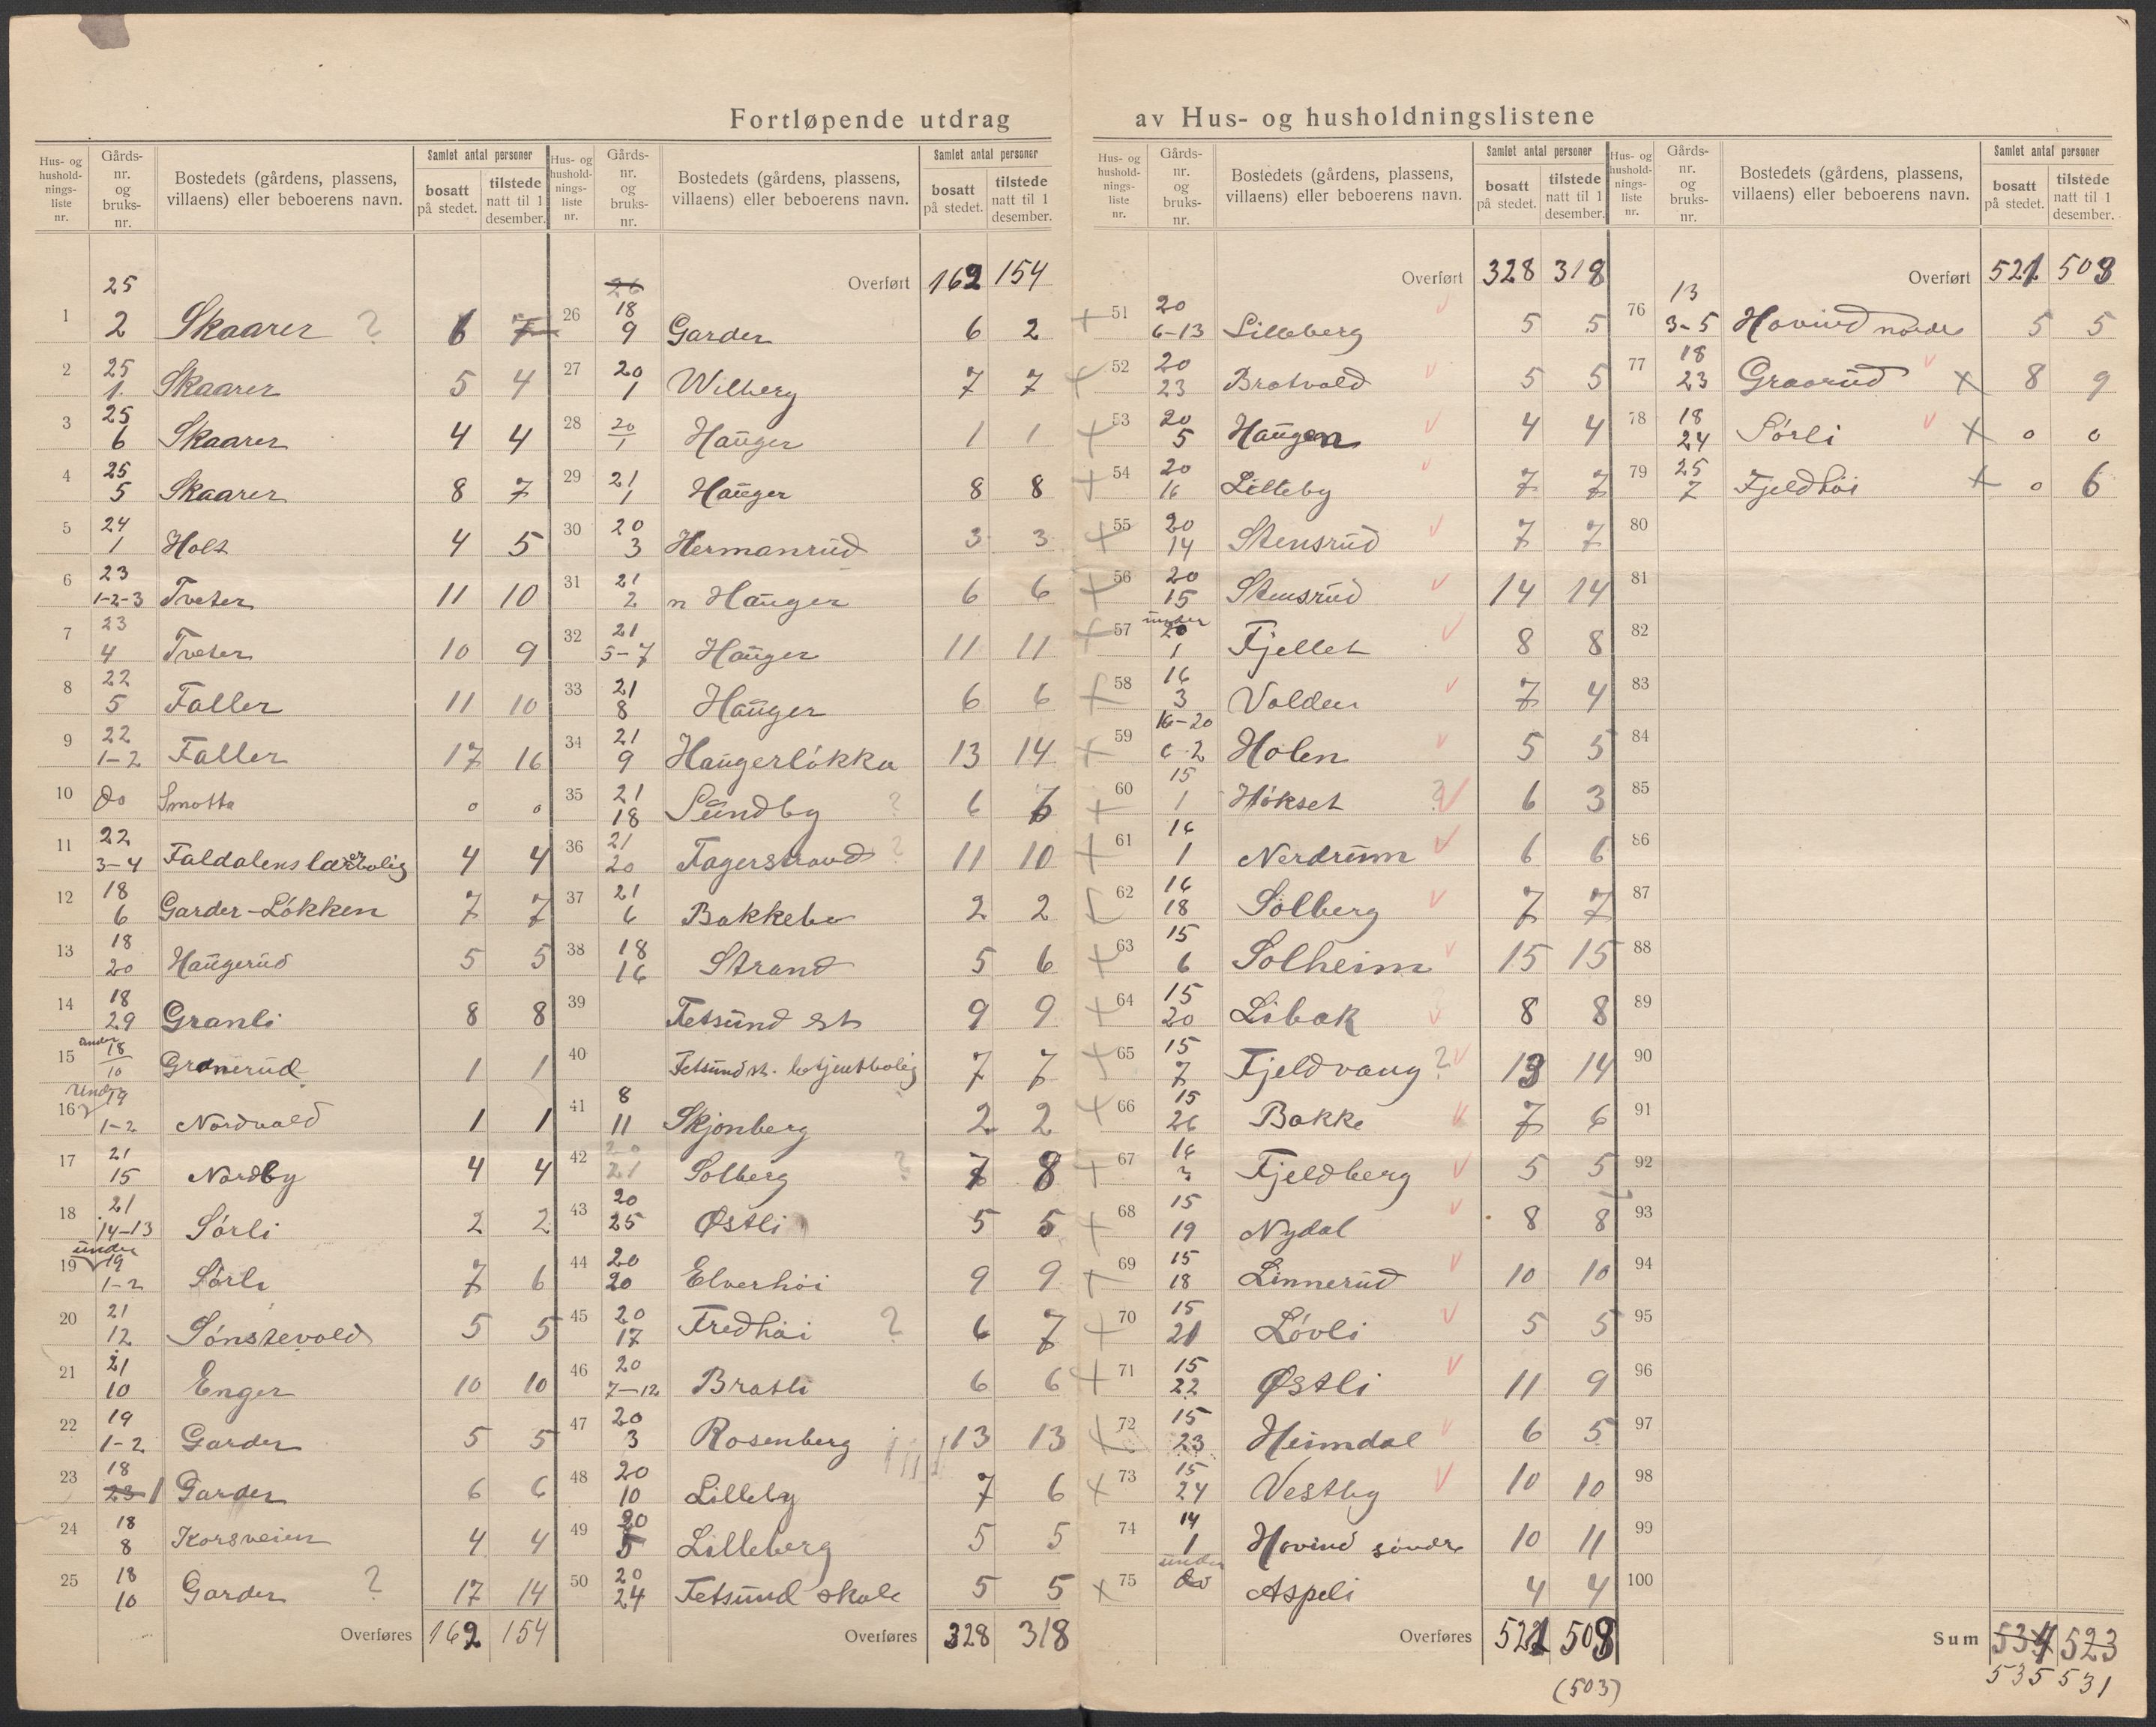 Fortløpende utdrag av Hus- og husholdningslistene
Hus- og hushold-nings-liste nr. Gårds-nr. og bruks-nr. Bostedets (gårdens, plassens, villaens) eller beboerens navn. Samlet antal personer bosatt på stedet. tilstede natt til 1 desember.
1 25 2 Skaarer ? 6 7
2 25 1 Skaarer 5 4
3 25 6 Skaarer 4 4
4 25 5 Skaarer 8 7
5 24 1 Holt 4 5
6 23 1-2-3 Tveter 11 10
7 23 4 Tveter 10 9
8 22 5 Faller 11 10
9 22 1-2 Faller 17 16
10 do Smotta 0 0
11 22 3-4 Faldalens lærerbolig 4 4
12 18 6 Garder-Løkken 7 7
13 18 20 Haugerud 5 5
14 18 29 Granli 8 8
15 under 18 10 Granerud 1 1
16 Under 19 1-2 Nordvold 1 1
17 21 15 Nordby 4 4
18 21 14-13 Sørli 2 2
19 under 19 1-2 Sørli 7 6
20 21 12 Sønstevold 5 5
21 21 10 Enger 10 10
22 19 1-2 Garder 5 5
23 18 23 1 Garder 6 6
24 18 8 Korsveien 4 4
25 18 10 Garder ? 17 14
Overføres 162 154
Hus- og hushold-nings-liste nr. Gårds-nr. og bruks-nr. Bostedets (gårdens, plassens, villaens) eller beboerens navn. Samlet antal personer bosatt på stedet. tilstede natt til 1 desember.
Overført 162 154
26 26 18 9 Garder 6 2
27 20 1 Wilberg 7 7
28 20 1 Hauger 1 1
29 21 1 Hauger 8 8
30 20 3 Hermanrud 3 3
31 21 2 n Hauger 6 6
32 21 5-7 Hauger 11 11
33 21 8 Hauger 6 6
34 21 9 Haugerløkka 13 14
35 21 18 Sundby ? 6 6
36 21 20 Fagerstrand ? 11 10
37 21 6 Bakkebo 2 2
38 18 16 Strand 5 6
39 Fetsund st 9 9
40 Fetsund st. betjentbolig 7 7
41 8 11 Skjønberg 2 2
42 20 21 Solberg ? 7 8
43 20 25 Østli 5 5
44 20 20 Elverhøi 9 9
45 20 17 Fredhøi ? 6 7
46 20 7-12 Bratli 6 6
47 20 3 Rosenberg 13 13
48 20 10 Lilleby 7 6
49 20 5 Lilleberg 5 5
50 20 24 Fetsund skole 5 5
Overføres 328 318
Hus- og hushold-nings-liste nr. Gårds-nr. og bruks-nr. Bostedets (gårdens, plassens, villaens) eller beboerens navn. Samlet antal personer bosatt på stedet. tilstede natt til 1 desember.
Overført 328 318
51 20 6-13 Lilleberg 5 5
52 20 23 Bratvold 5 5
53 20 5 Haugen 4 4
54 20 16 Lilleby 7 7
55 20 14 Stensrud 7 7
56 20 15 Stensrud 14 14
57 under 20 1 Fjellet 8 8
58 16 3 Volden 7 4
59 16-20 6-2 Holen 5 5
60 15 1 Høkset ? 6 3
61 16 1 Nerdrum 6 6
62 16 18 Solberg 7 7
63 15 6 Solheim 15 15
64 15 20 Libak 8 8
65 15 7 Fjeldvang ? 13 14
66 15 26 Bakke 7 6
67 16 3 Fjeldberg 5 5
68 15 19 Nydal 8 8
69 15 18 Linnerud 10 10
70 15 21 Løvli 5 5
71 15 22 Østli 11 9
72 15 23 Heimdal 6 5
73 15 24 Vestby 10 10
74 14 1 Hovind søndre 10 11
75 under do Aspeli 4 4
Overføres 521 508
(503)
Hus- og hushold-nings-liste nr. Gårds-nr. og bruks-nr. Bostedets (gårdens, plassens, villaens) eller beboerens navn. Samlet antal personer bosatt på stedet. tilstede natt til 1 desember.
Overført 521 508
76 13 3-5 Hovind nordre 5 5
77 18 23 Graarud x 8 9
78 18 24 Sørli x 0 0
79 25 7 Fjeldhøi x 0 6
80
81
82
83
84
85
86
87
88
89
90
91
92
93
94
95
96
97
98
99
100
Sum 534 523
535 531